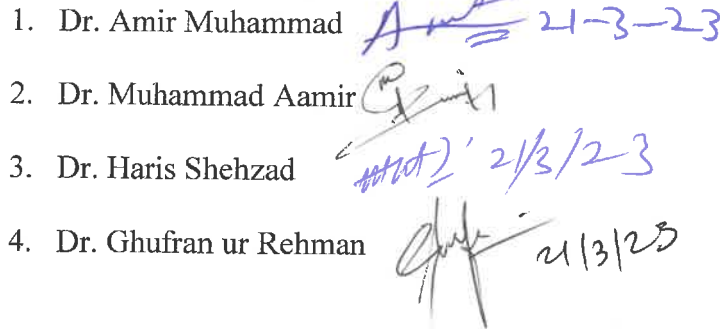 1. Dr. Amir Muhammad 21-3-23
2. Dr. Muhammad Aamir
3. Dr. Haris Shehzad 21/3/23
4. Dr. Ghufran ur Rehman 21/3/23